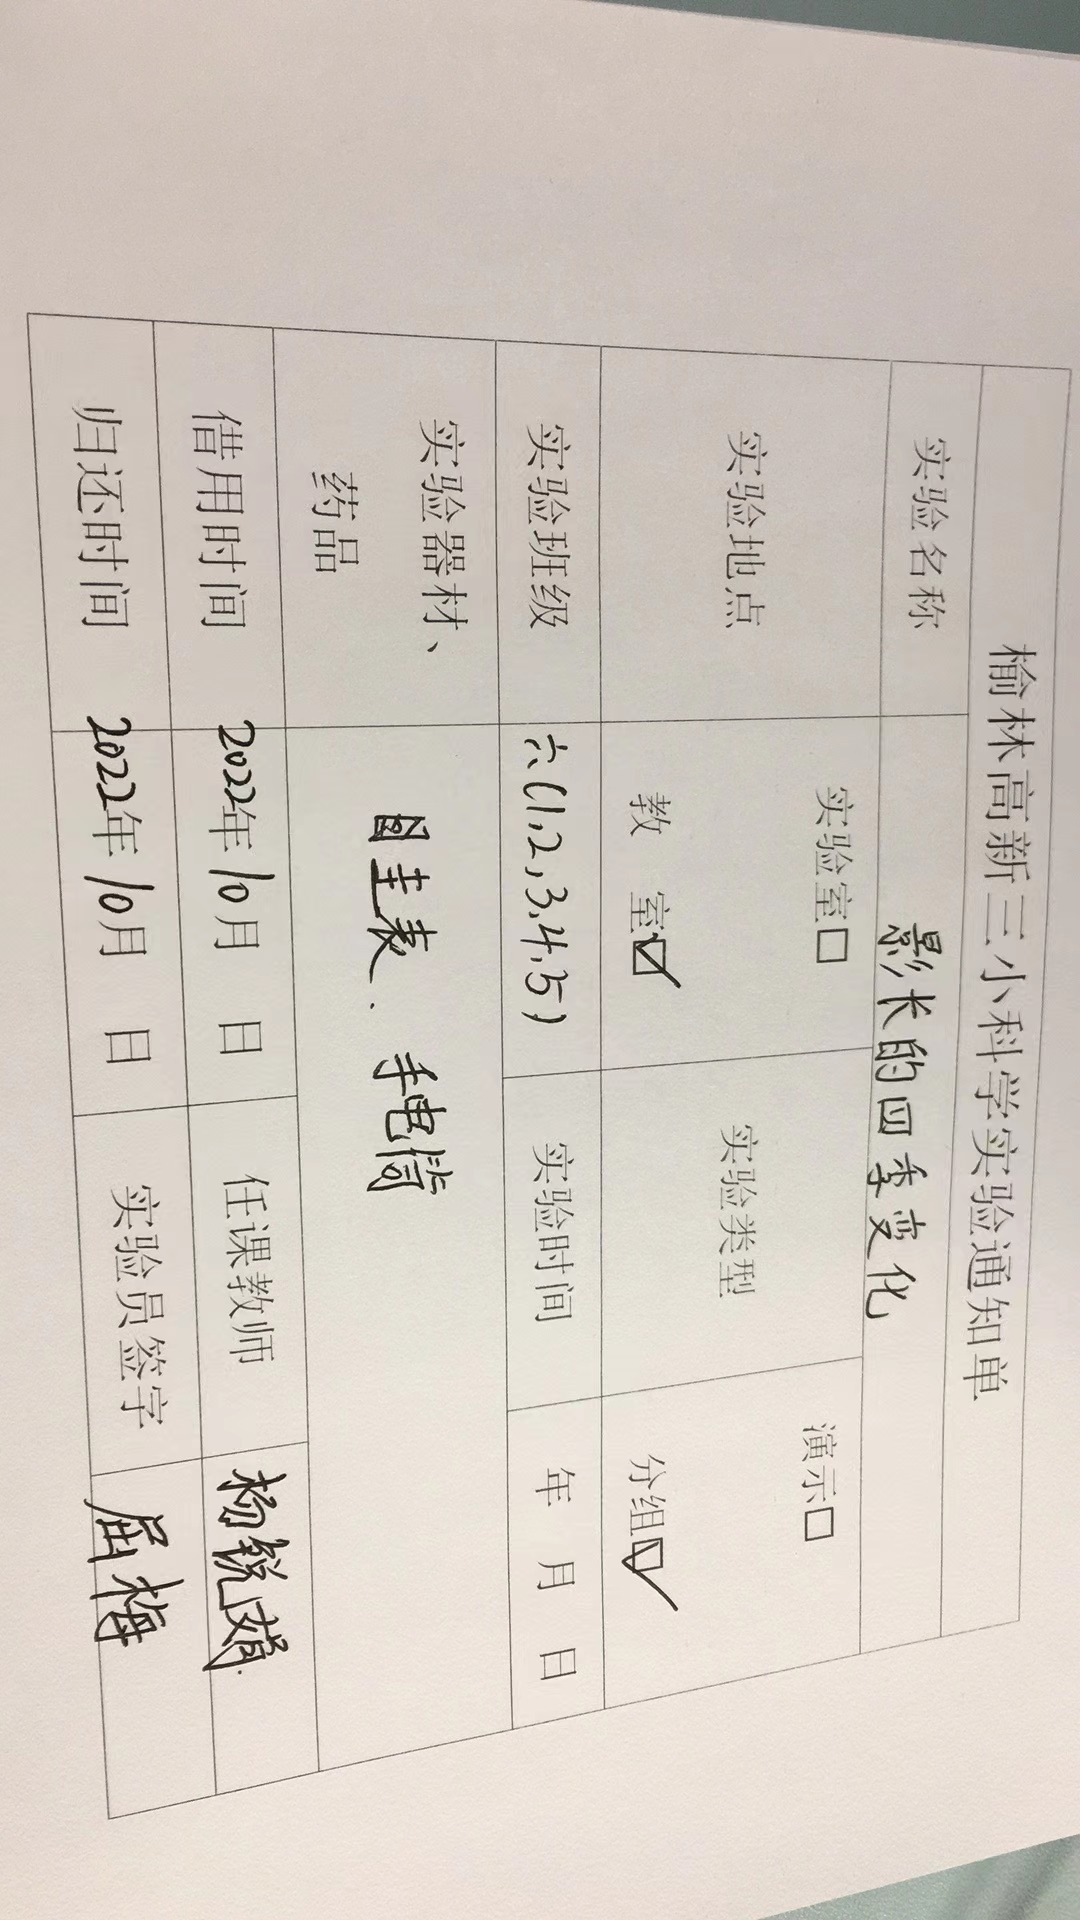 榆林高新三小科学实验通知单
实验名称 影长的四季变化
实验地点 实验室□ 教 室☑ 实验类型 演示□ 分组☑
实验班级 六(1,2,3,4,5) 实验时间 年 月 日
实验器材、药品 圭表、手电筒
借用时间 2022年10月 日 任课教师 杨锐娟
归还时间 2022年10月 日 实验员签字 屈梅